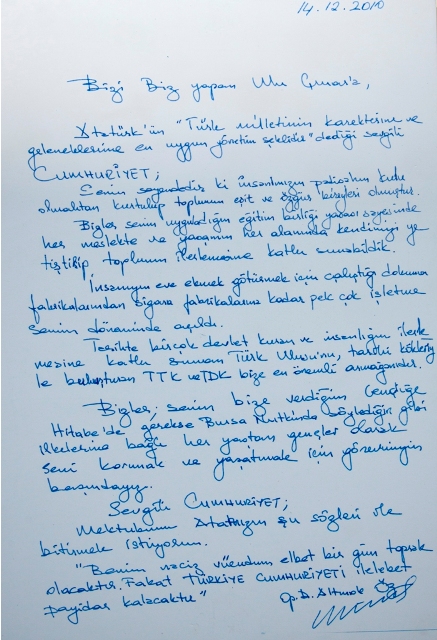 14.12.2010
Bizi Biz yapan Ulu Çınar'a,
Atatürk'ün "Türk milletinin karekterine ve
geleneklerine en uygun yönetim şeklidir" dediği sevgili
CUMHURİYET;
Senin sayendedir ki insanımızın padişahın kulu
olmaktan kurtulup toplumun eşit ve özgür bireyleri olmuştur.
Bizler senin uyguladığın eğitim birliği yasası sayesinde
her meslekte ve yaşamın her alanında kendimizi ye
tiştirip toplumun ilerlemesine katkı sunabildik.
İnsanımızın eve ekmek götürmek için çalıştığı dokuma
fabrikalarından sigara fabrikalarına kadar pek çok işletme
senin döneminde açıldı.
Tarihte birçok devlet kuran ve insanlığın ilerle
mesine katkı sunan Türk Ulusunu, tarihi kökleriy
le buluşturan TTK ve TDK bize en önemli armağanındır.
Bizler, senin bize verdiğin Gençliğe
Hitabe'de gerekse Bursa Nutkunda söylediğin gibi
ilkelerine bağlı her yaştan gençler olarak
seni korumak ve yaşatmak için görevimizin
başındayız.
Sevgili CUMHURİYET;
Mektubumu Atamızın şu sözleri ile
bitirmek istiyorum.
"Benim naciz vücudum elbet bir gün toprak
olacaktır. Fakat TÜRKİYE CUMHURİYETİ ilelebet
payidar kalacaktır"
Op. D.